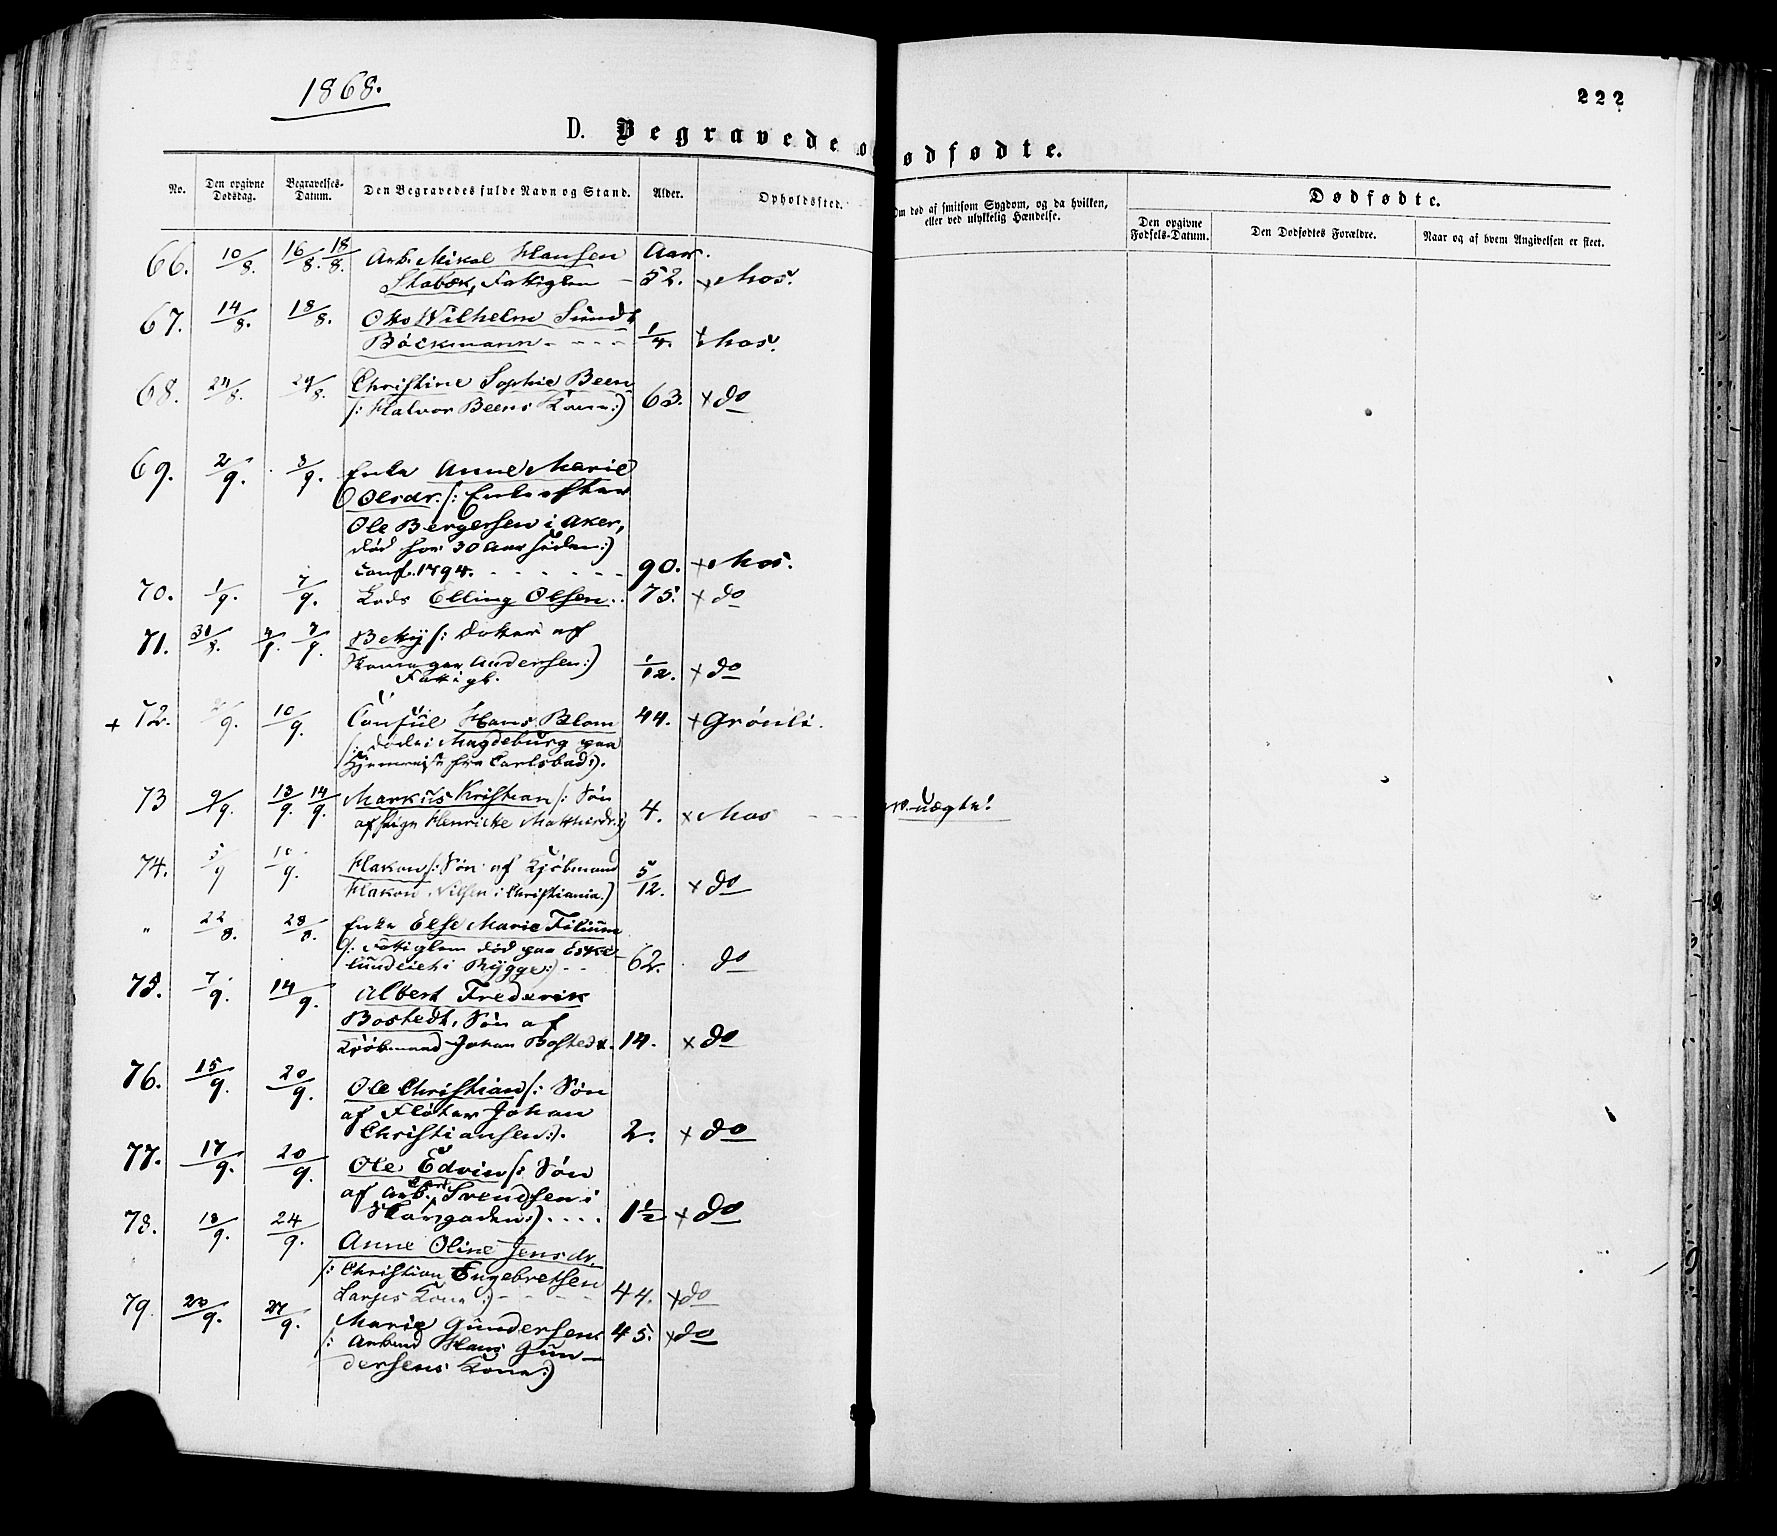 1868.
222
D. Begravede o ødfødte.
No. Den opgivne Dødsdag. Begravelses-Datum. Den Begravedes fulde Navn og Stand. Alder. Opholdssted. Om død af smitsom Sygdom, og da hvilken, eller ved ulykkelig Hændelse. Dødfødte.
Den opgivne Fødsels-Datum. Den Dødfødtes Forældre. Naar og af hvem Angivelsen er skeet.
66. 10/8. 16/8. 18/8. Arb. Mikal Hansen Aar.
Stabæk, Fattiglem - 52. x Mos.
67. 14/8. 18/8. Otto Wilhelm Sundt
Böckmann - - - - 1/4. x Mos.
68. 24/8. 29/8. Christine Sophie Been
/: Halvor Beens Kone :) 63. x do
69. 2/9. 3/9. Enke Anne Marie
Olsdr. /: Enke efter
Ole Bergersen i Aker,
død for 30 Aar siden :)
conf. 1794. - - - - - - 90. x Mos.
70. 1/9. 7/9. Lods Elling Olsen . . 75. x do
71. 31/8. 4/9. 7/9. Betsy /: Datter af
Andersen :) 1/12. x do
Fattigl.
+ 72. /9. 10/9. Consul Hans Blom 44. x Grönli.
/: døde i Magdeburg paa
Hjemreise fra Carlsbad :).
73 9/9. 13/9. 14/9. Markus Kristian /: Søn
af Pige Henrikke Mathisdr. :) 4. x Mos - - - uægte!
74. 5/9 10/9. Hakon /: Søn af Kjöbmand
Hakon Nilsen i Christiania :) 5/12. x do
" 22/8. 28/8. Enke Else Marie
/: Fattiglem død paa Eske-
lundeiet i Rygge :) - - 62. do
75. 7/9. 14/9. Albert Frederik
Bostedt, Søn af
Kjöbmand Johan Bostedt. 14. x do
76. 15/9. 20/9. Ole Christian /: Søn
af Fløter Johan
Christiansen :). 2. x do
77. 17/9. 20/9. Ole Edvin /: Søn
af Arb. Svendsen i
:) . . . . 1 1/2 x do
78. 18/9. 24/9. Anne Oline Jensdr.
/: Christian Engebretsen
Kone :) - - - - 44. x do
79. 20/9. 27/9. Marie Gundersen 45. x do
/: Arbmd Hans Gun-
dersens Kone :)